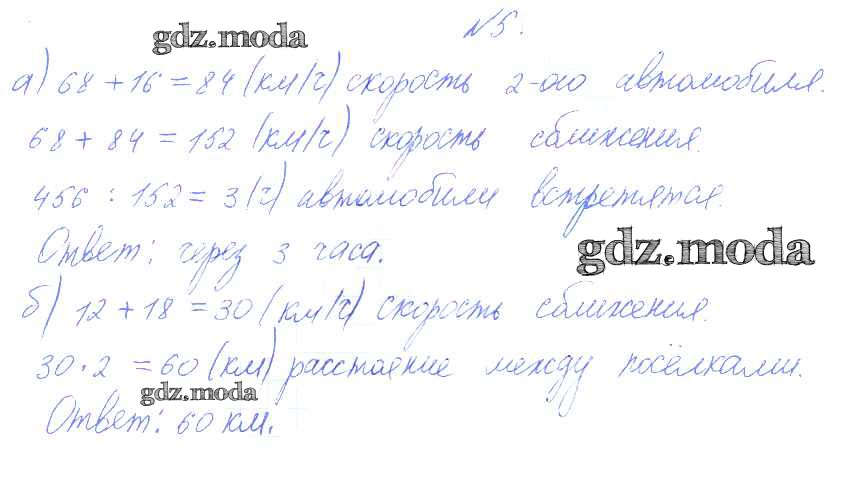 gdz.moda
№5.
а) 68 + 16 = 84 (км/ч) скорость 2-ого автомобиля.
68 + 84 = 152 (км/ч) скорость сближения.
456 : 152 = 3 (ч) автомобили встретятся.
Ответ: через 3 часа.
gdz.moda
б) 12 + 18 = 30 (км/ч) скорость сближения.
30 · 2 = 60 (км) расстояние между посёлками.
gdz.moda
Ответ: 60 км.